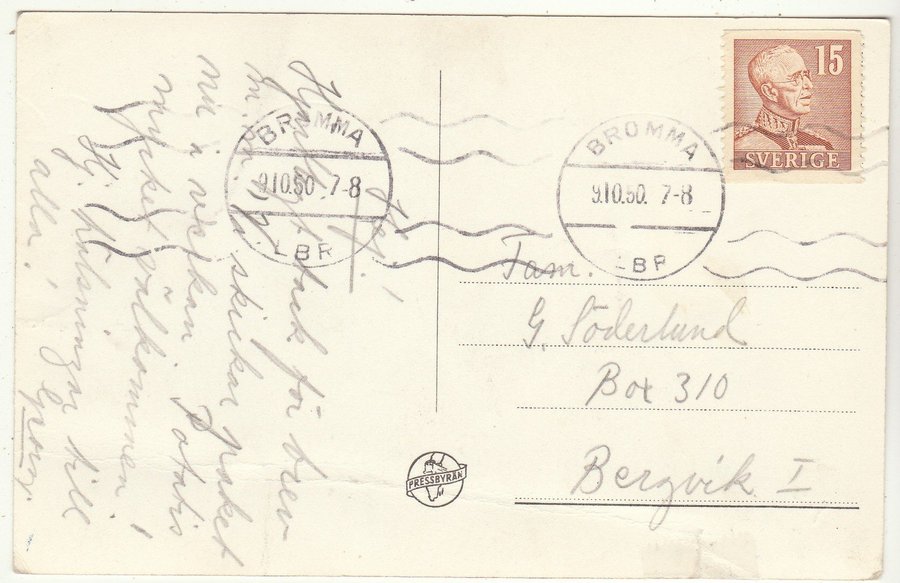 Hej!
Hjärtligt tack för brev
Mamma skickar paket
nu i veckan. Potatis
mycket välkommen!
Hj. hälsningar till
alla!
Georg.
BROMMA
9.10.50 7-8
LBR
BROMMA
9.10.50 7-8
LBR
15
SVERIGE
Fam.
G. Söderlund
Box 310
Bergvik I
PRESSBYRÅN